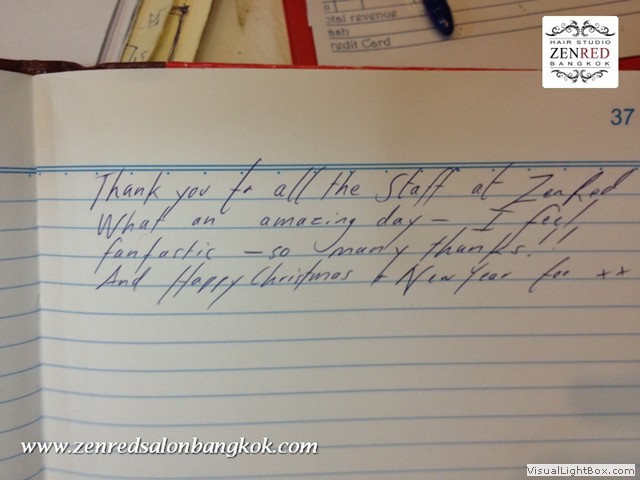 otal revenue
ash
redit Card
HAIR STUDIO
ZENRED
BANGKOK
37
Thank you to all the Staff at ZenRed
What an amazing day – I feel
fantastic – so many thanks!!
And Happy Christmas & New Year too xx
www.zenredsalonbangkok.com
VisualLightBox.com